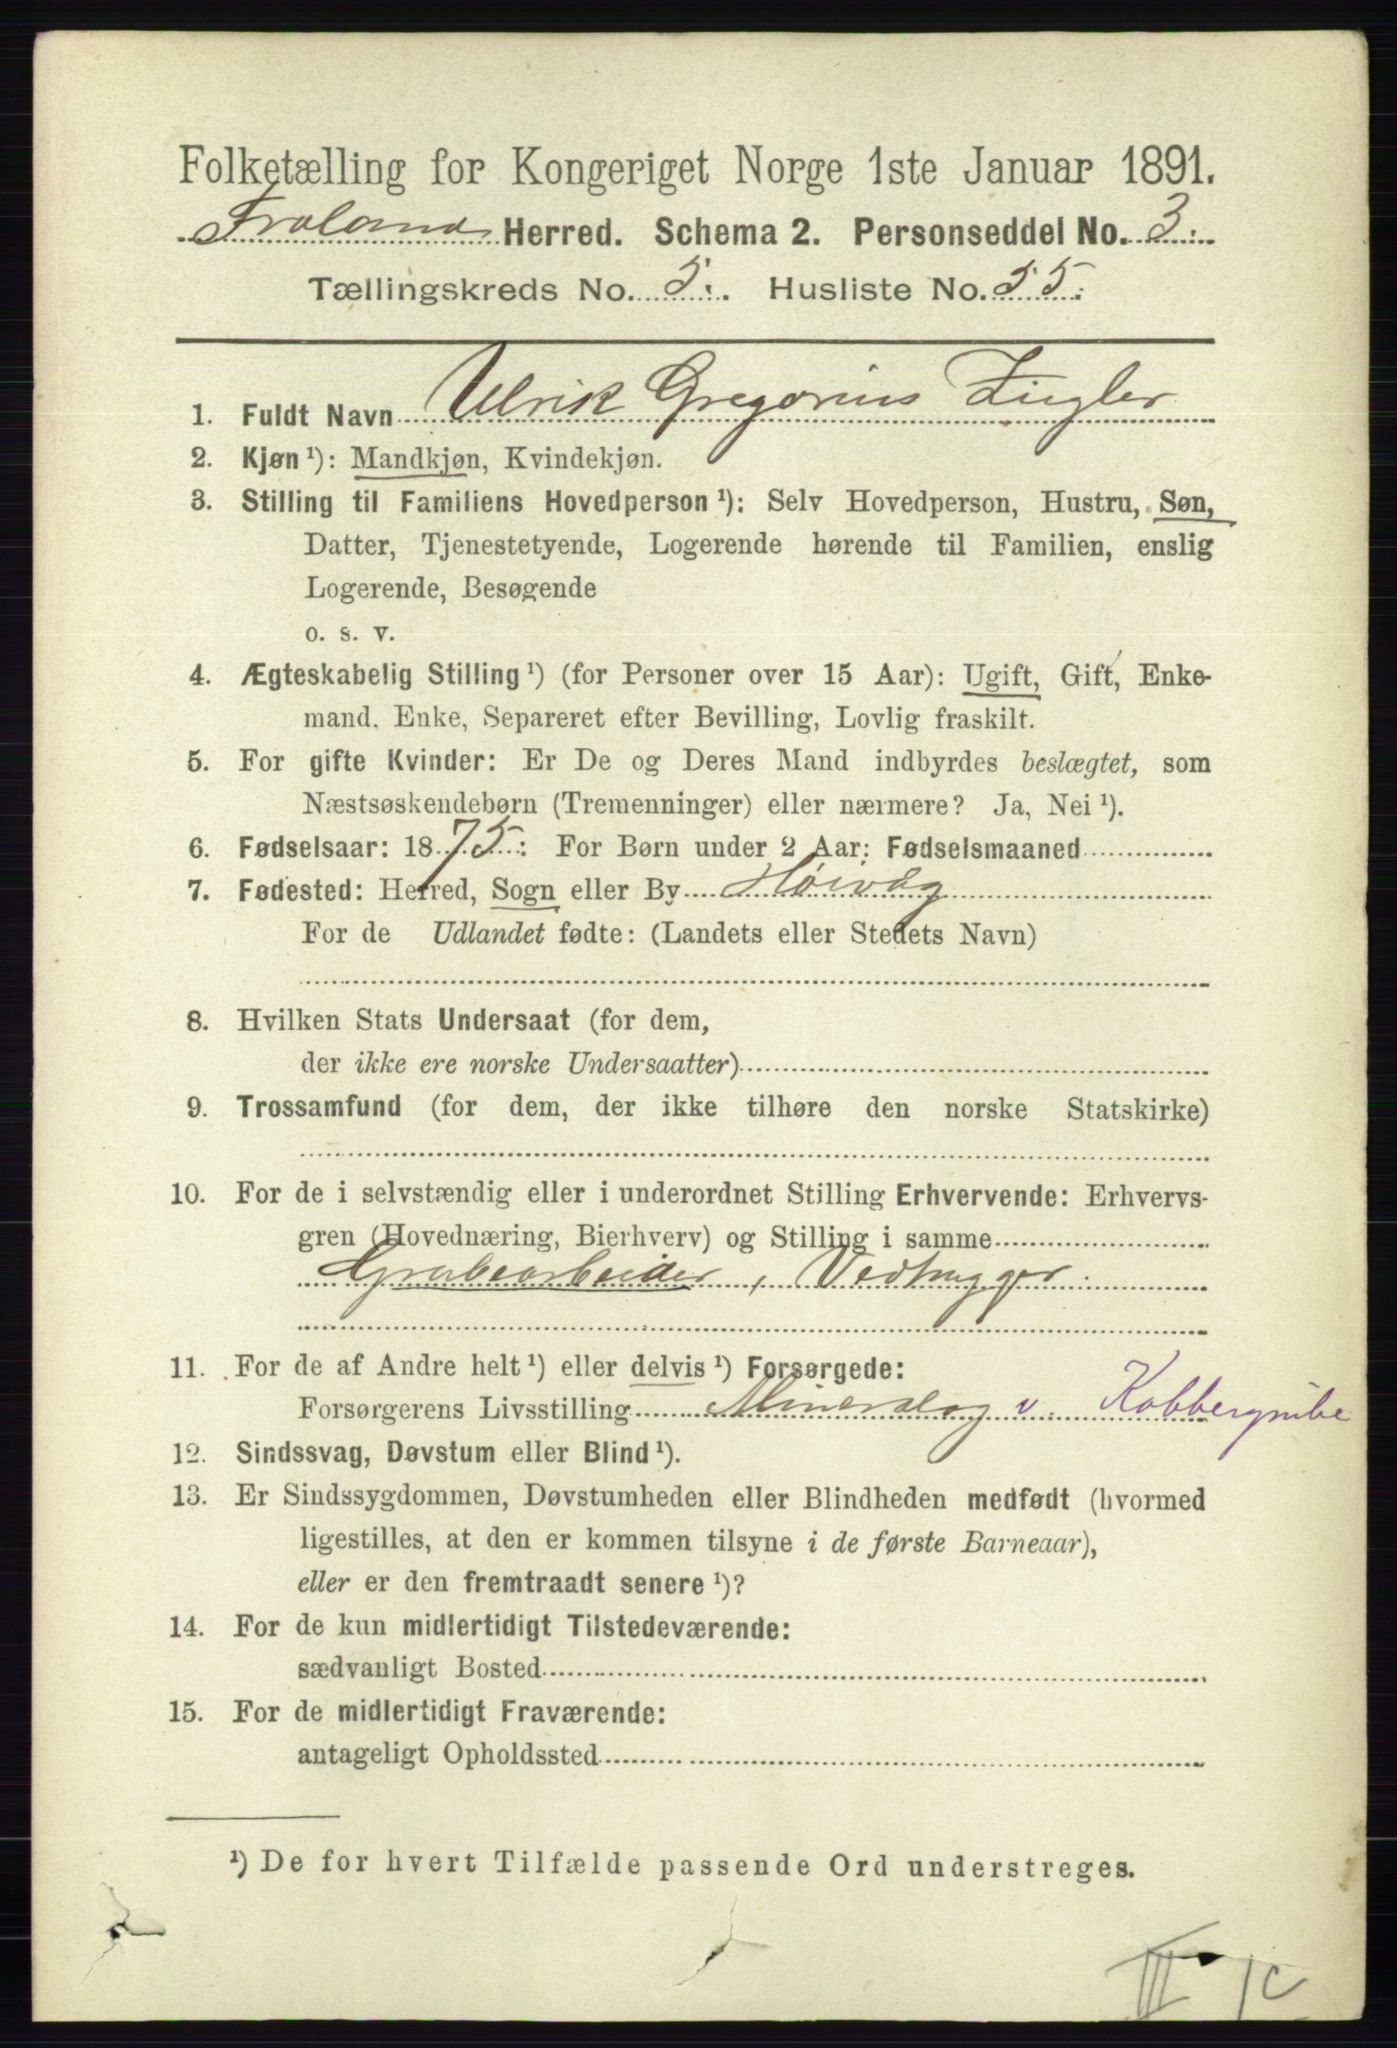 Folketælling for Kongeriget Norge 1ste Januar 1891.
Froland Herred. Schema 2. Personseddel No. 3.
Tællingskreds No. 5. Husliste No. 55.
1. Fuldt Navn Ulrik Gregorius Ziegler
2. Kjøn ¹): Mandkjøn, Kvindekjøn.
3. Stilling til Familiens Hovedperson ¹): Selv Hovedperson, Hustru, Søn,
Datter, Tjenestetyende, Logerende hørende til Familien, enslig
Logerende, Besøgende
o. s. v.
4. Ægteskabelig Stilling ¹) (for Personer over 15 Aar): Ugift, Gift, Enke-
mand, Enke, Separeret efter Bevilling, Lovlig fraskilt.
5. For gifte Kvinder: Er De og Deres Mand indbyrdes beslægtet, som
Næstsøskendebørn (Tremenninger) eller nærmere? Ja, Nei ¹).
6. Fødselsaar: 1875. For Børn under 2 Aar: Fødselsmaaned
7. Fødested: Herred, Sogn eller By Høivåg
For de Udlandet fødte: (Landets eller Stedets Navn)
8. Hvilken Stats Undersaat (for dem,
der ikke ere norske Undersaatter)
9. Trossamfund (for dem, der ikke tilhøre den norske Statskirke)
10. For de i selvstændig eller i underordnet Stilling Erhvervende: Erhvervs-
gren (Hovednæring, Bierhverv) og Stilling i samme
Grubearbeider, Vedhugger.
11. For de af Andre helt ¹) eller delvis ¹) Forsørgede:
Forsørgerens Livsstilling Mineralog v. Kobbergrube
12. Sindssvag, Døvstum eller Blind ¹).
13. Er Sindssygdommen, Døvstumheden eller Blindheden medfødt (hvormed
ligestilles, at den er kommen tilsyne i de første Barneaar),
eller er den fremtraadt senere ¹)?
14. For de kun midlertidigt Tilstedeværende:
sædvanligt Bosted
15. For de midlertidigt Fraværende:
antageligt Opholdssted
¹) De for hvert Tilfælde passende Ord understreges.
III 1c